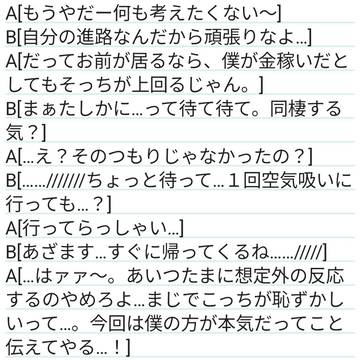 A[もうやだー何も考えたくない〜]
B[自分の進路なんだから頑張りなよ…]
A[だってお前が居るなら、僕が金稼いだと
してもそっちが上回るじゃん。]
B[まぁたしかに…って待て待て。同棲する
気？]
A[…え？そのつもりじゃなかったの？]
B[……///////ちょっと待って…１回空気吸いに
行っても…？]
A[行ってらっしゃい…]
B[あざます…すぐに帰ってくるね……/////]
A[…はァァ〜。あいつたまに想定外の反応
するのやめろよ…まじでこっちが恥ずかし
いって…。今回は僕の方が本気だってこと
伝えてやる…！]